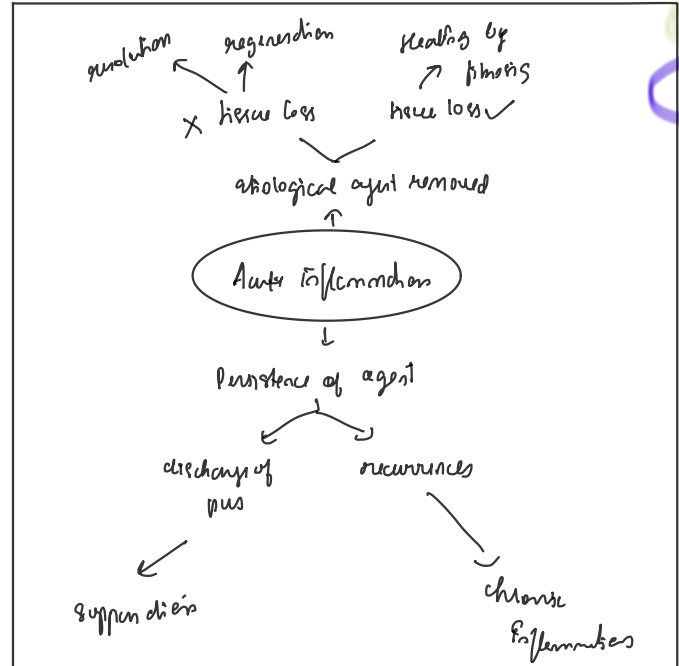 resolution
regeneration
Healing by
fibrosis
x tissue loss
tissue loss ✓
etiological agent removed
Acute inflammation
Persistence of agent
discharge of
pus
recurrences
suppuration
chronic
inflammation